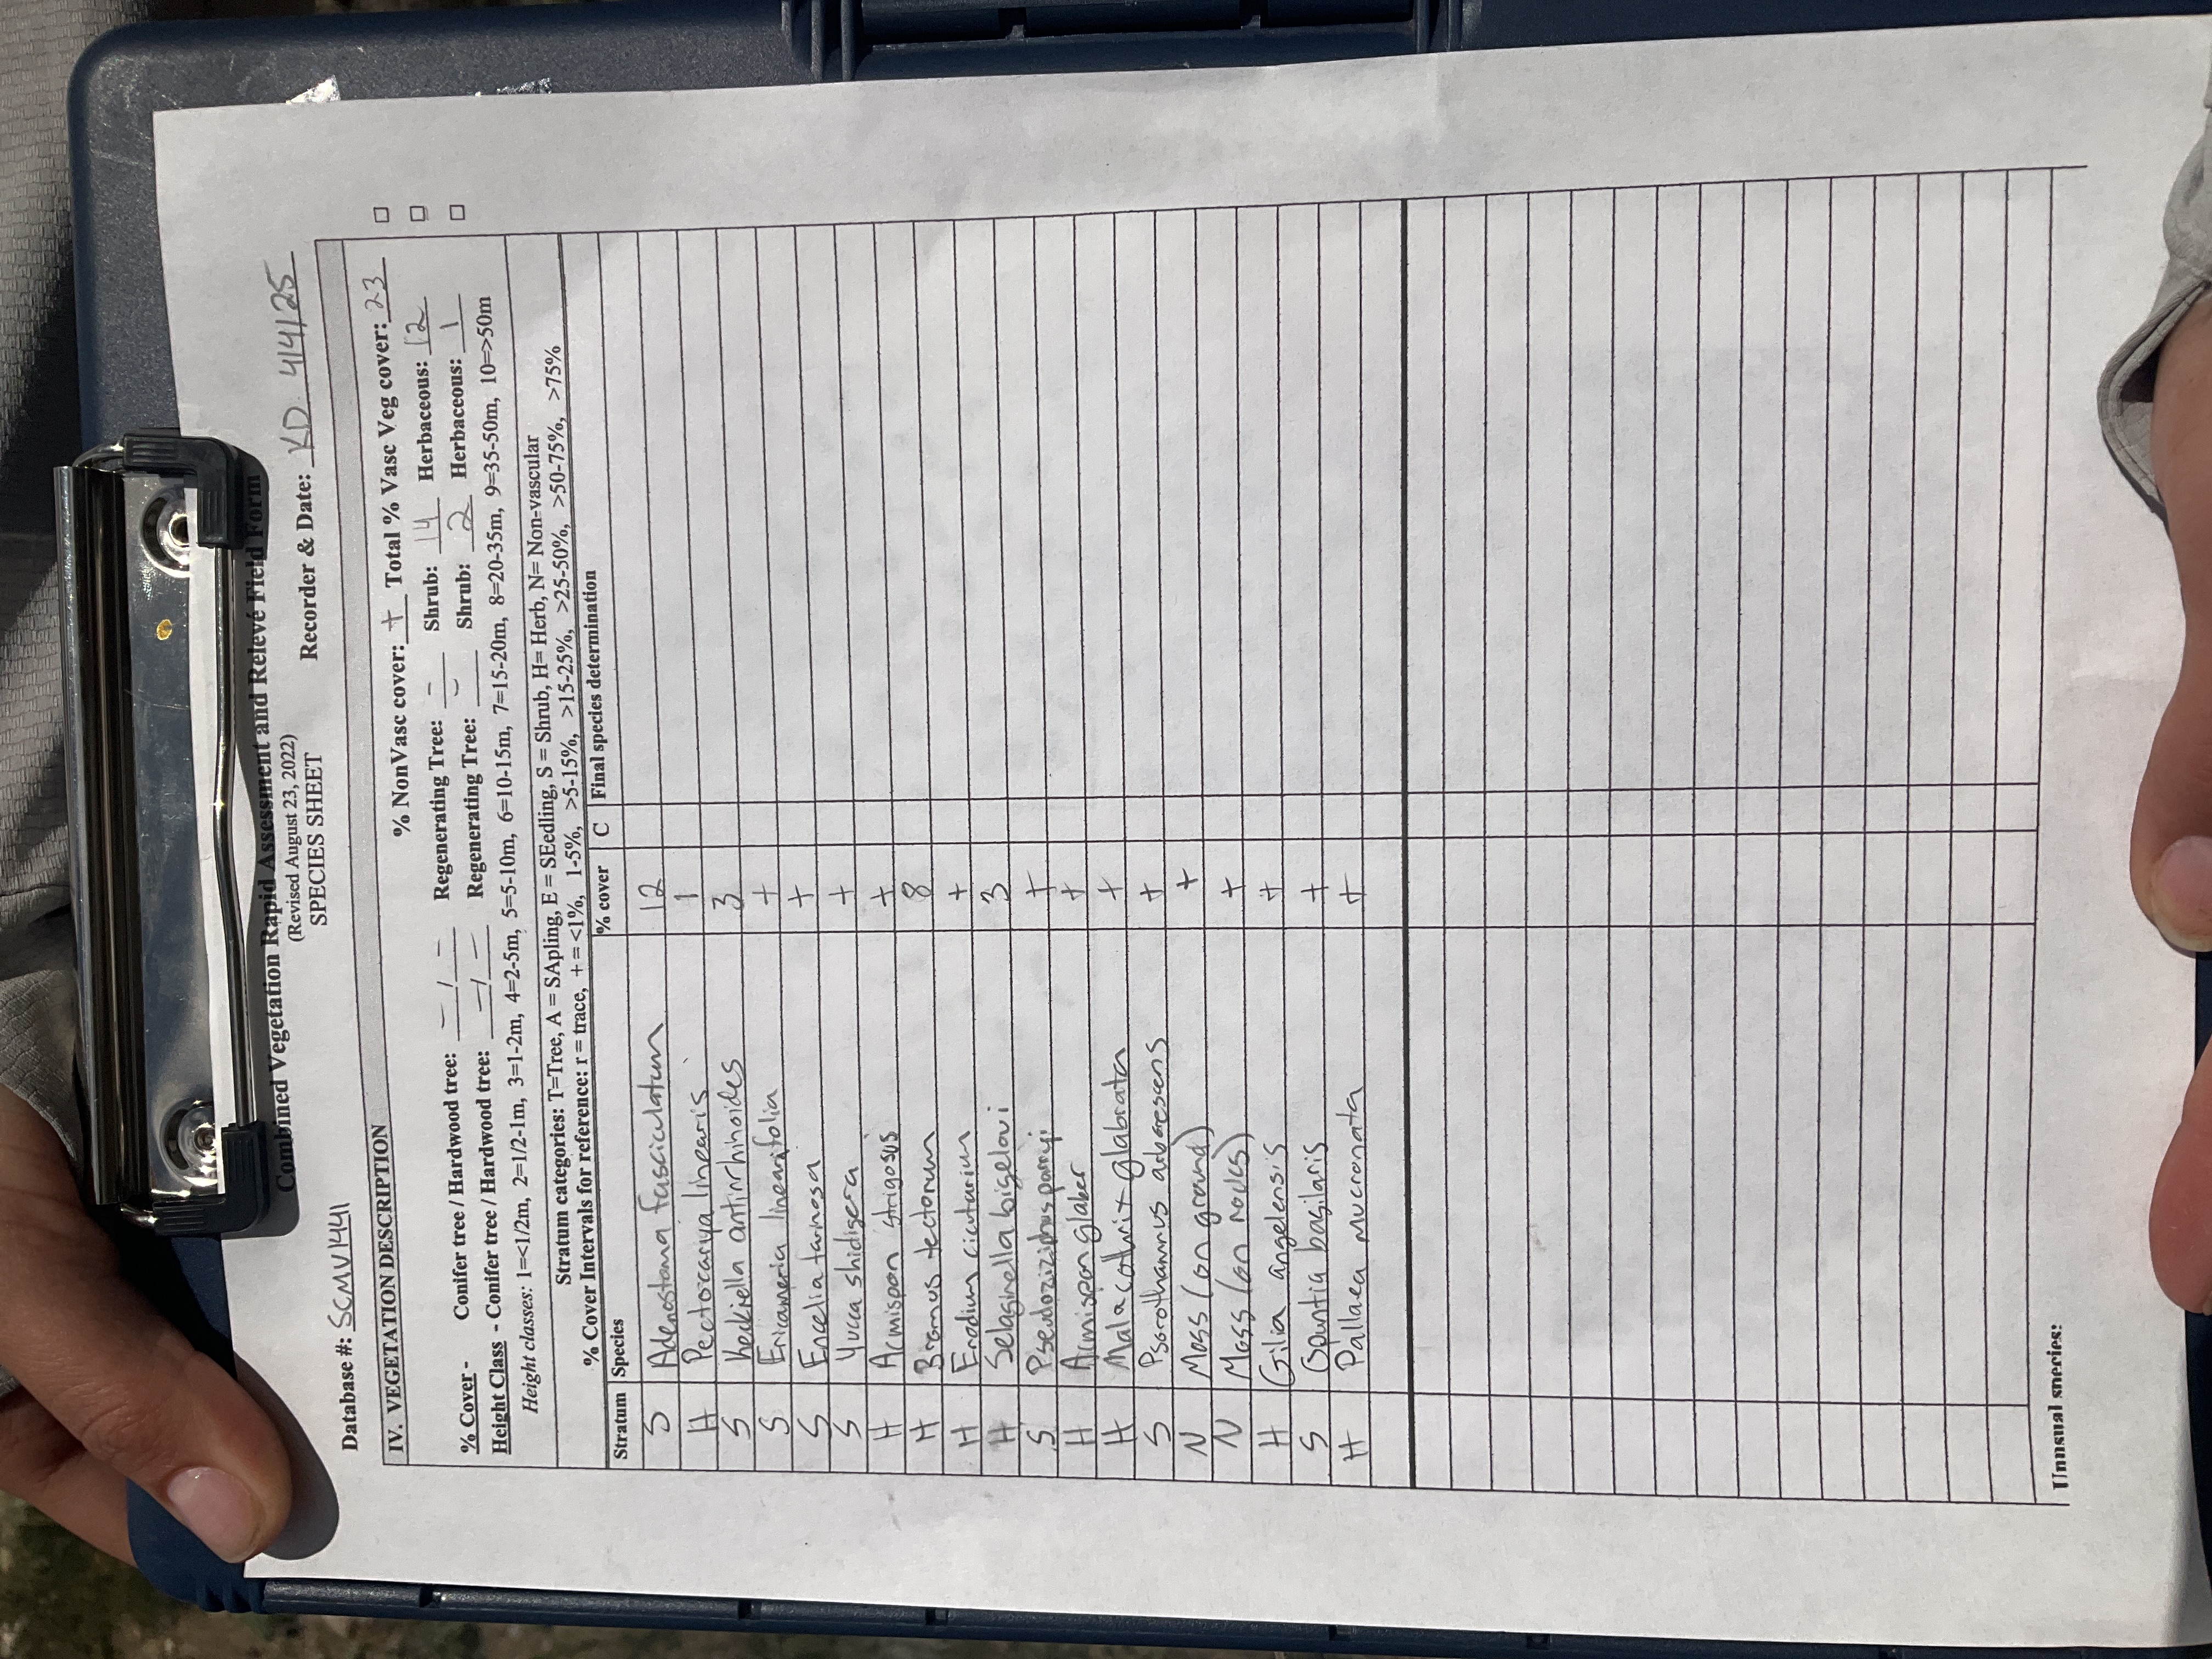 Combined Vegetation Rapid Assessment and Relevé Field Form
(Revised August 23, 2022)
SPECIES SHEET
Database #: SCMV1441 Recorder & Date: KD 4/4/25
IV. VEGETATION DESCRIPTION
% NonVasc cover: + Total % Vasc Veg cover: 23 □
% Cover - Conifer tree / Hardwood tree: - / - Regenerating Tree: - Shrub: 14 Herbaceous: 12 □
Height Class - Conifer tree / Hardwood tree: - / - Regenerating Tree: - Shrub: 2 Herbaceous: 1 □
Height classes: 1=<1/2m, 2=1/2-1m, 3=1-2m, 4=2-5m, 5=5-10m, 6=10-15m, 7=15-20m, 8=20-35m, 9=35-50m, 10=>50m
Stratum categories: T=Tree, A = SApling, E = SEedling, S = Shrub, H= Herb, N= Non-vascular
% Cover Intervals for reference: r = trace, + = <1%, 1-5%, >5-15%, >15-25%, >25-50%, >50-75%, >75%
Stratum Species % cover C Final species determination
S Adenostoma fasciculatum 12
H Pectocarya linearis 1
S Keckiella antirrhinoides 3
S Ericameria linearifolia +
S Encelia farinosa +
S Yucca shidigera +
H Acmispon strigosus +
H Bromus tectorum 8
H Erodium cicutarium +
H Selaginella bigelovi 3
S Pseudoziziphus parryi +
H Acmispon glaber +
H Malacothrix glabrata +
S Psorothamnus arborescens +
N Moss (on ground) +
N Moss (on rocks) +
H Gilia angelensis +
S Opuntia basilaris +
H Pallaea mucronata +
Unusual species: